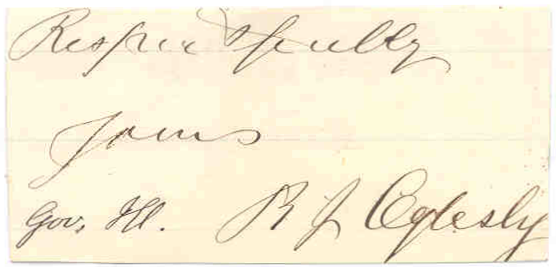 Respectfully
Yours
Gov, Ill. R J Oglesby